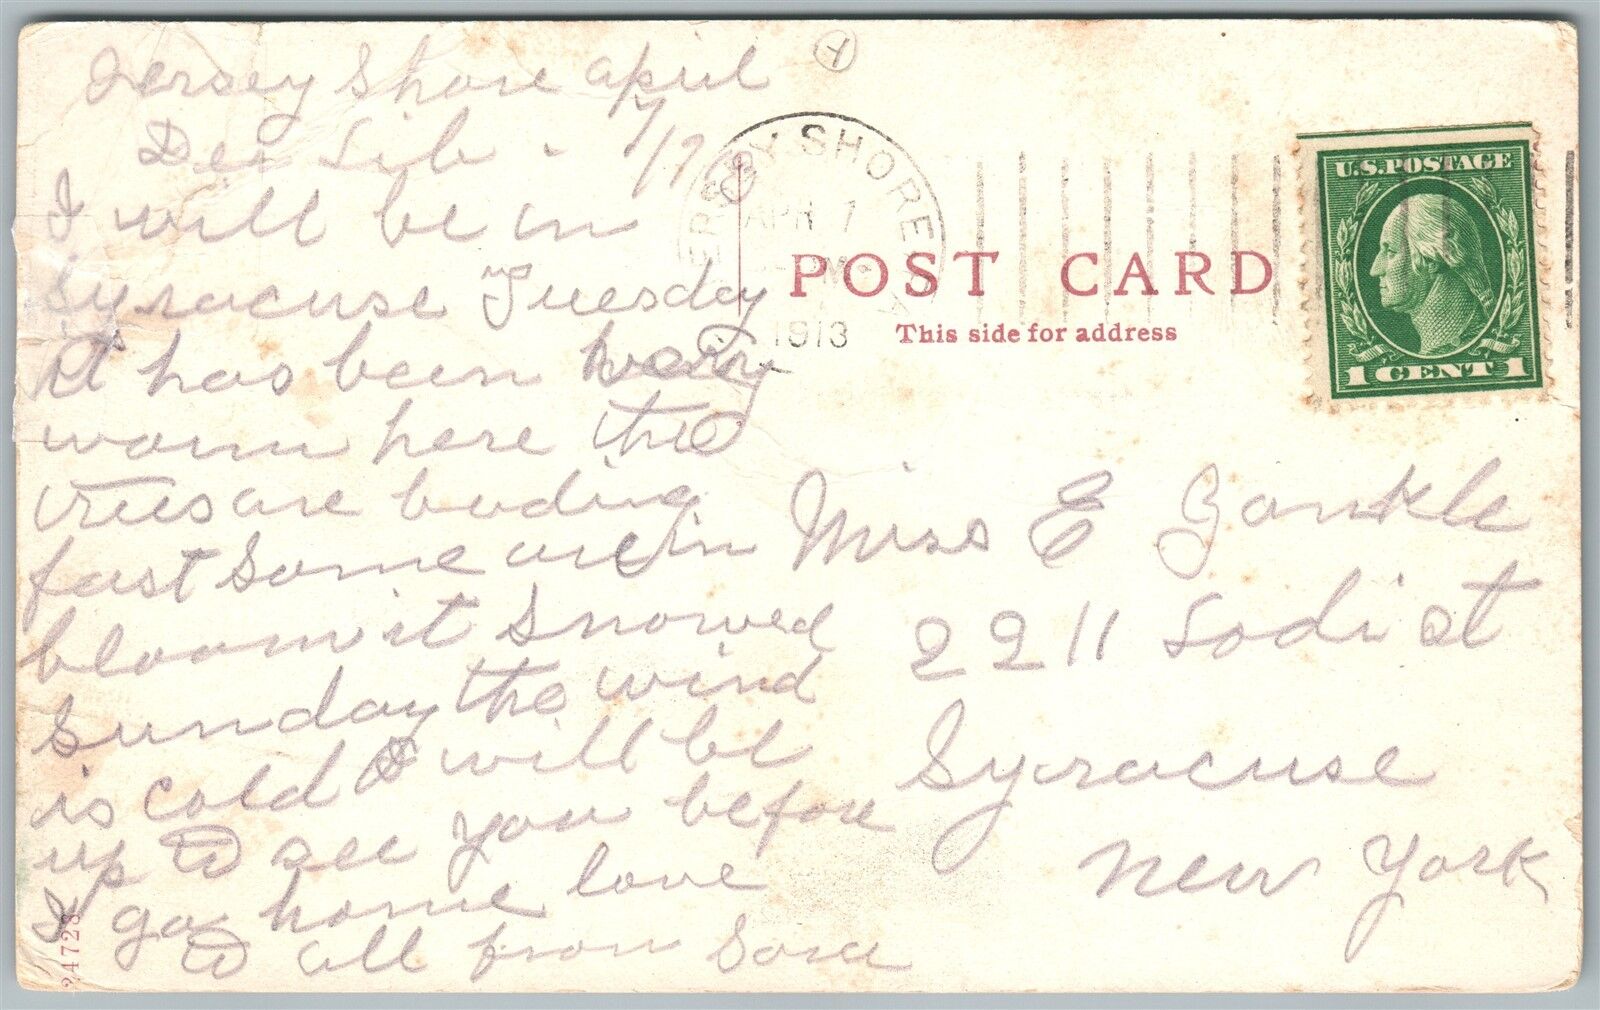 Jersey Shore april
7/1913
Der Sib.
I will be in
Syracuse Tuesday
it has been verry
warm here the
trees are buding
fast some are in
bloom it snowed
Sunday the wind
is cold I will be
up to see you before
I go home love
to all from Sara
24728
JERSEY SHORE
APR 7
1913
POST CARD
This side for address
U.S. POSTAGE
1 CENT 1
Miss E Gankle
2211 Lodi st
Syracuse
New York